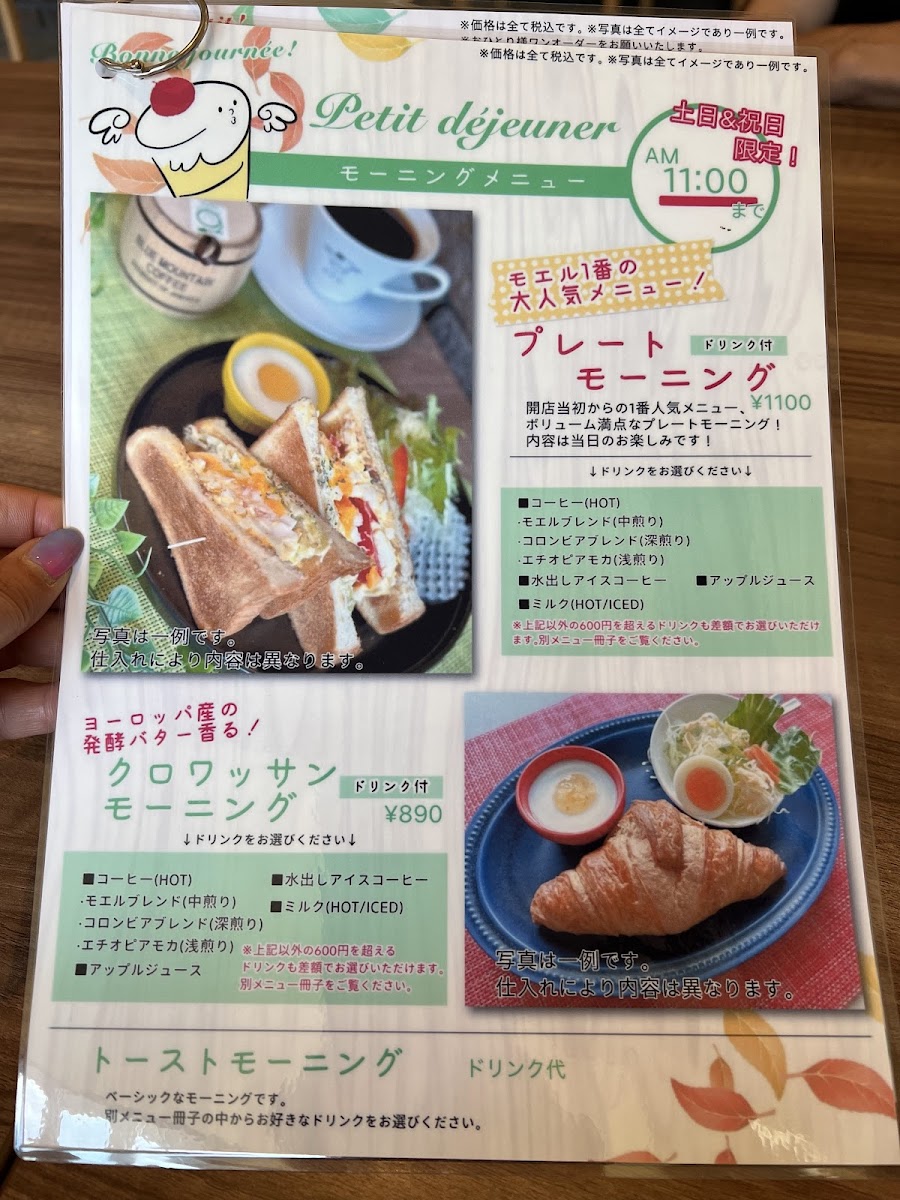 ※価格は全て税込です。※写真は全てイメージであり一例です。
※おひとり様ワンオーダーをお願いいたします。
※価格は全て税込です。※写真は全てイメージであり一例です。
Bonne journée!
Petit déjeuner
モーニングメニュー
土日&祝日
限定！
AM
11:00
まで
BLUE MOUNTAIN
COFFEE
モエル1番の
大人気メニュー！
プレート
モーニング
ドリンク付
¥1100
開店当初からの1番人気メニュー、
ボリューム満点なプレートモーニング！
内容は当日のお楽しみです！
↓ドリンクをお選びください↓
■コーヒー(HOT)
・モエルブレンド(中煎り)
・コロンビアブレンド(深煎り)
・エチオピアモカ(浅煎り)
■水出しアイスコーヒー ■アップルジュース
■ミルク(HOT/ICED)
※上記以外の600円を超えるドリンクも差額でお選びいただけ
ます。別メニュー冊子をご覧ください。
写真は一例です。
仕入れにより内容は異なります。
ヨーロッパ産の
発酵バター香る！
クロワッサン
モーニング
ドリンク付
¥890
↓ドリンクをお選びください↓
■コーヒー(HOT)
・モエルブレンド(中煎り)
・コロンビアブレンド(深煎り)
・エチオピアモカ(浅煎り)
■アップルジュース
■水出しアイスコーヒー
■ミルク(HOT/ICED)
※上記以外の600円を超える
ドリンクも差額でお選びいただけます。
別メニュー冊子をご覧ください。
写真は一例です。
仕入れにより内容は異なります。
トーストモーニング ドリンク代
ベーシックなモーニングです。
別メニュー冊子の中からお好きなドリンクをお選びください。